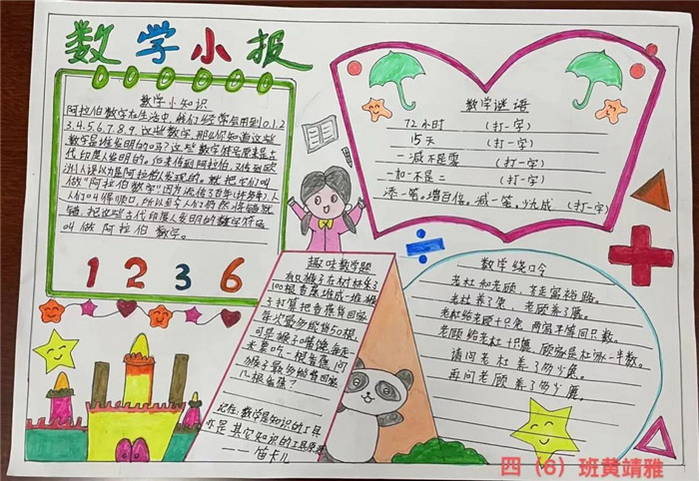 数学小报
数学小知识
阿拉伯数字在生活中,我们经常会用到0.1.2
3.4.5.6.7.8.9.这些数字.那么你知道这些
数字是谁发明的吗?这些数字符号原来是古
代印度人发明的。后来传到阿拉伯,又传到欧
洲人误以为是阿拉伯人发明的。就把它们叫
做"阿拉伯数字"因为流传了
人们叫得顺口,所以至今人们仍然将错就
错,把这些古代印度人发明的数字符号
叫做阿拉伯数字。
1 2 3 6
数学谜语
72小时 (打一字)
15天 (打一字)
一减不是零 (打一字)
一加不是二 (打一字)
添一笔,增百倍,减一笔,少九成 (打一字)
趣味数学题
有只猴子在树林采了
100根香蕉堆成一堆,猴
子打算把香蕉背回家,
每次最多能背50根,
可是猴子嘴馋,每走
一米要吃一根香蕉,问
猴子最多能背回家
几根香蕉?
记住:数学是知识的工具
亦是其它知识的工具
——笛卡儿
数学绕口令
老杜和老顾,一年走富裕路。
老杜养了兔,老顾养了鹿。
老杜给老顾十只兔,两家平等同只数。
老顾给老杜十只鹿,顾家是杜家一半数。
请问老杜养了多少兔。
再问老顾养了多少鹿。
四(6)班黄靖雅